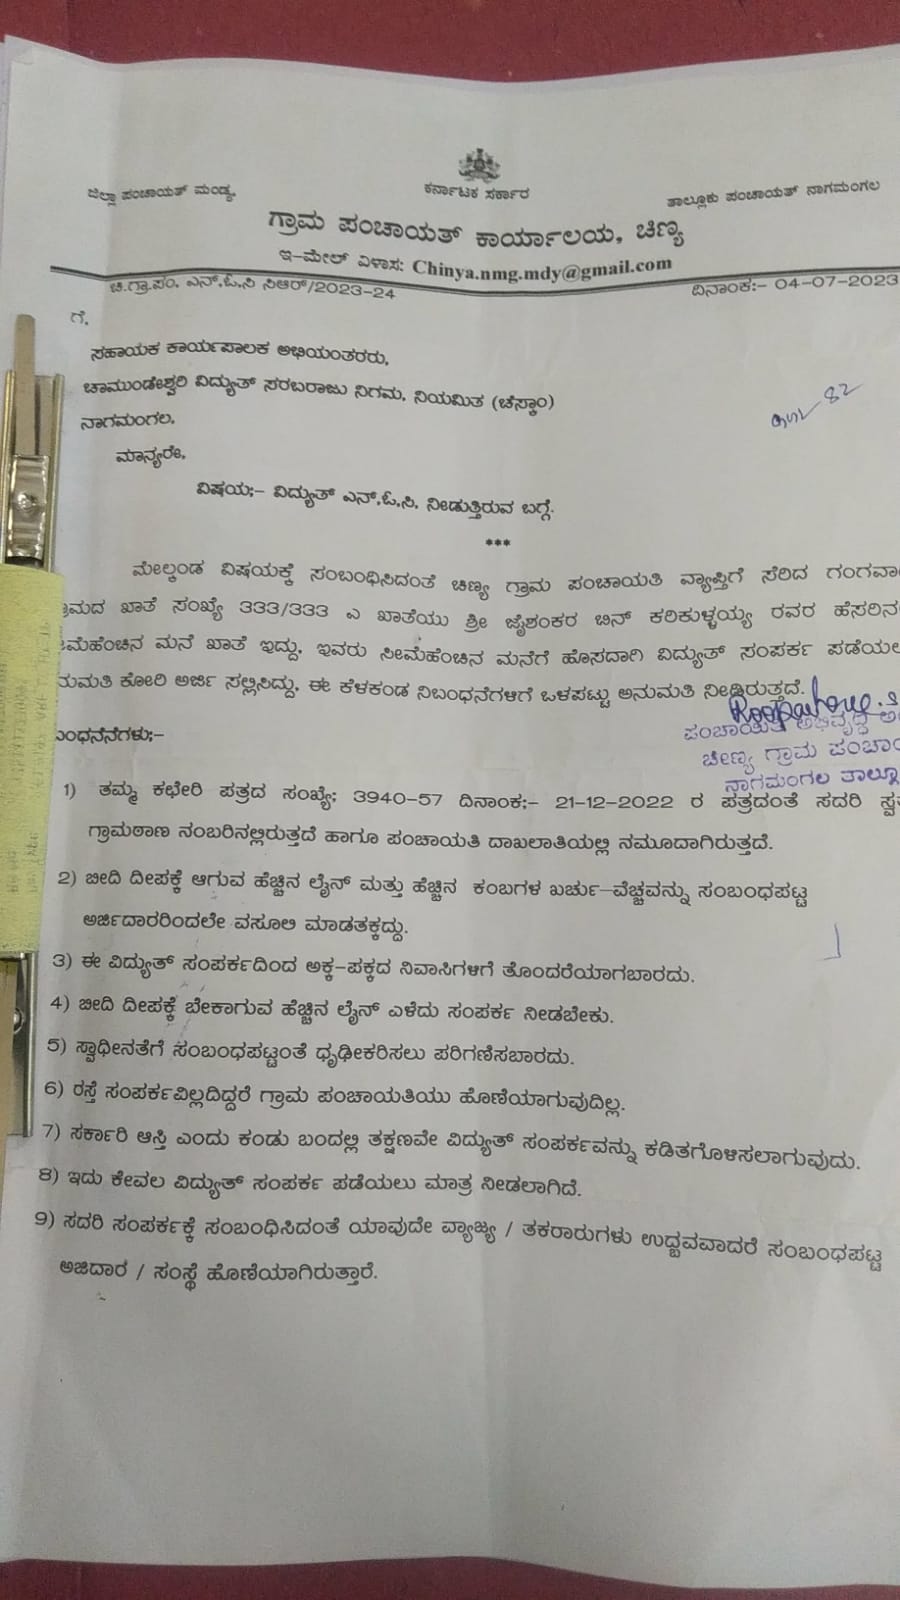 ಕರ್ನಾಟಕ ಸರ್ಕಾರ
ಜಿಲ್ಲಾ ಪಂಚಾಯತ್ ಮಂಡ್ಯ,
ತಾಲ್ಲೂಕು ಪಂಚಾಯತ್ ನಾಗಮಂಗಲ
ಗ್ರಾಮ ಪಂಚಾಯತ್ ಕಾರ್ಯಾಲಯ, ಚಿಣ್ಯ
ಇ-ಮೇಲ್ ವಿಳಾಸ: Chinya.nmg.mdy@gmail.com
ಚಿ.ಗ್ರಾ.ಪಂ, ಎನ್.ಓ.ಸಿ ಸಿಆರ್/2023-24
ದಿನಾಂಕ:- 04-07-2023
ಗೆ,
ಸಹಾಯಕ ಕಾರ್ಯಪಾಲಕ ಅಭಿಯಂತರರು,
ಚಾಮುಂಡೇಶ್ವರಿ ವಿದ್ಯುತ್ ಸರಬರಾಜು ನಿಗಮ, ನಿಯಮಿತ (ಚೆಸ್ಕಾಂ)
ನಾಗಮಂಗಲ,
82
ಮಾನ್ಯರೇ,
ವಿಷಯ;- ವಿದ್ಯುತ್ ಎನ್.ಓ.ಸಿ, ನೀಡುತ್ತಿರುವ ಬಗ್ಗೆ.
***
ಮೇಲ್ಕಂಡ ವಿಷಯಕ್ಕೆ ಸಂಬಂಧಿಸಿದಂತೆ ಚಿಣ್ಯ ಗ್ರಾಮ ಪಂಚಾಯತಿ ವ್ಯಾಪ್ತಿಗೆ ಸೆರಿದ ಗಂಗವಾ
ಖಾತೆ ಸಂಖ್ಯೆ 333/333 ಎ ಖಾತೆಯು ಶ್ರೀ ಜೈಶಂಕರ ಬಿನ್ ಕರಿಕುಳ್ಳಯ್ಯ ರವರ ಹೆಸರಿನ
ಮನೆ ಖಾತೆ ಇದ್ದು, ಇವರು ಸೀಮೆಹೆಂಚಿನ ಮನೆಗೆ ಹೊಸದಾಗಿ ವಿದ್ಯುತ್ ಸಂಪರ್ಕ ಪಡೆಯಲ
ನುಮತಿ ಕೋರಿ ಅರ್ಜಿ ಸಲ್ಲಿಸಿದ್ದು, ಈ ಕೆಳಕಂಡ ನಿಬಂಧನೆಗಳಿಗೆ ಒಳಪಟ್ಟು ಅನುಮತಿ ನೀಡಿರುತ್ತದೆ.
ಪಂಚಾಯತಿ ಅಭಿವೃದ್ಧಿ
ಬಂಧನೆಗಳು;-
ಚೀಣ್ಯ ಗ್ರಾಮ ಪಂಚಾ
ನಾಗಮಂಗಲ ತಾಲ್ಲೂ
1) ತಮ್ಮ ಕಛೇರಿ ಪತ್ರದ ಸಂಖ್ಯೆ; 3940-57 ದಿನಾಂಕ;- 21-12-2022 ರ ಪತ್ರದಂತೆ ಸದರಿ ಸ್ವ
ಗ್ರಾಮಠಾಣ ನಂಬರಿನಲ್ಲಿರುತ್ತದೆ ಹಾಗೂ ಪಂಚಾಯತಿ ದಾಖಲಾತಿಯಲ್ಲಿ ನಮೂದಾಗಿರುತ್ತದೆ.
2) ಬೀದಿ ದೀಪಕ್ಕೆ ಆಗುವ ಹೆಚ್ಚಿನ ಲೈನ್ ಮತ್ತು ಹೆಚ್ಚಿನ ಕಂಬಗಳ ಖರ್ಚು-ವೆಚ್ಚವನ್ನು ಸಂಬಂಧಪಟ್ಟ
ಅರ್ಜಿದಾರರಿಂದಲೇ ವಸೂಲಿ ಮಾಡತಕ್ಕದ್ದು.
3) ಈ ವಿದ್ಯುತ್ ಸಂಪರ್ಕದಿಂದ ಅಕ್ಕ-ಪಕ್ಕದ ನಿವಾಸಿಗಳಿಗೆ ತೊಂದರೆಯಾಗಬಾರದು.
4) ಬೀದಿ ದೀಪಕ್ಕೆ ಬೇಕಾಗುವ ಹೆಚ್ಚಿನ ಲೈನ್ ಎಳೆದು ಸಂಪರ್ಕ ನೀಡಬೇಕು.
5) ಸ್ವಾಧೀನತೆಗೆ ಸಂಬಂಧಪಟ್ಟಂತೆ ಧೃಢೀಕರಿಸಲು ಪರಿಗಣಿಸಬಾರದು.
6) ರಸ್ತೆ ಸಂಪರ್ಕವಿಲ್ಲದಿದ್ದರೆ ಗ್ರಾಮ ಪಂಚಾಯತಿಯು ಹೊಣೆಯಾಗುವುದಿಲ್ಲ.
7) ಸರ್ಕಾರಿ ಆಸ್ತಿ ಎಂದು ಕಂಡು ಬಂದಲ್ಲಿ ತಕ್ಷಣವೇ ವಿದ್ಯುತ್ ಸಂಪರ್ಕವನ್ನು ಕಡಿತಗೊಳಿಸಲಾಗುವುದು.
8) ಇದು ಕೇವಲ ವಿದ್ಯುತ್ ಸಂಪರ್ಕ ಪಡೆಯಲು ಮಾತ್ರ ನೀಡಲಾಗಿದೆ.
9) ಸದರಿ ಸಂಪರ್ಕಕ್ಕೆ ಸಂಬಂಧಿಸಿದಂತೆ ಯಾವುದೇ ವ್ಯಾಜ್ಯ / ತಕರಾರುಗಳು ಉದ್ಭವವಾದರೆ ಸಂಬಂಧಪಟ್ಟ
ಅಜಿದಾರ / ಸಂಸ್ಥೆ ಹೊಣೆಯಾಗಿರುತ್ತಾರೆ.